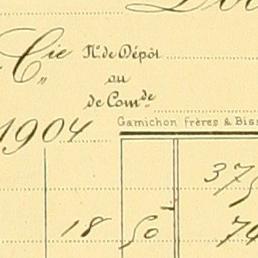 Cie Nº de Dépôt
ou
de Comde
1904
Gamichon frères & Biss
375
18 50